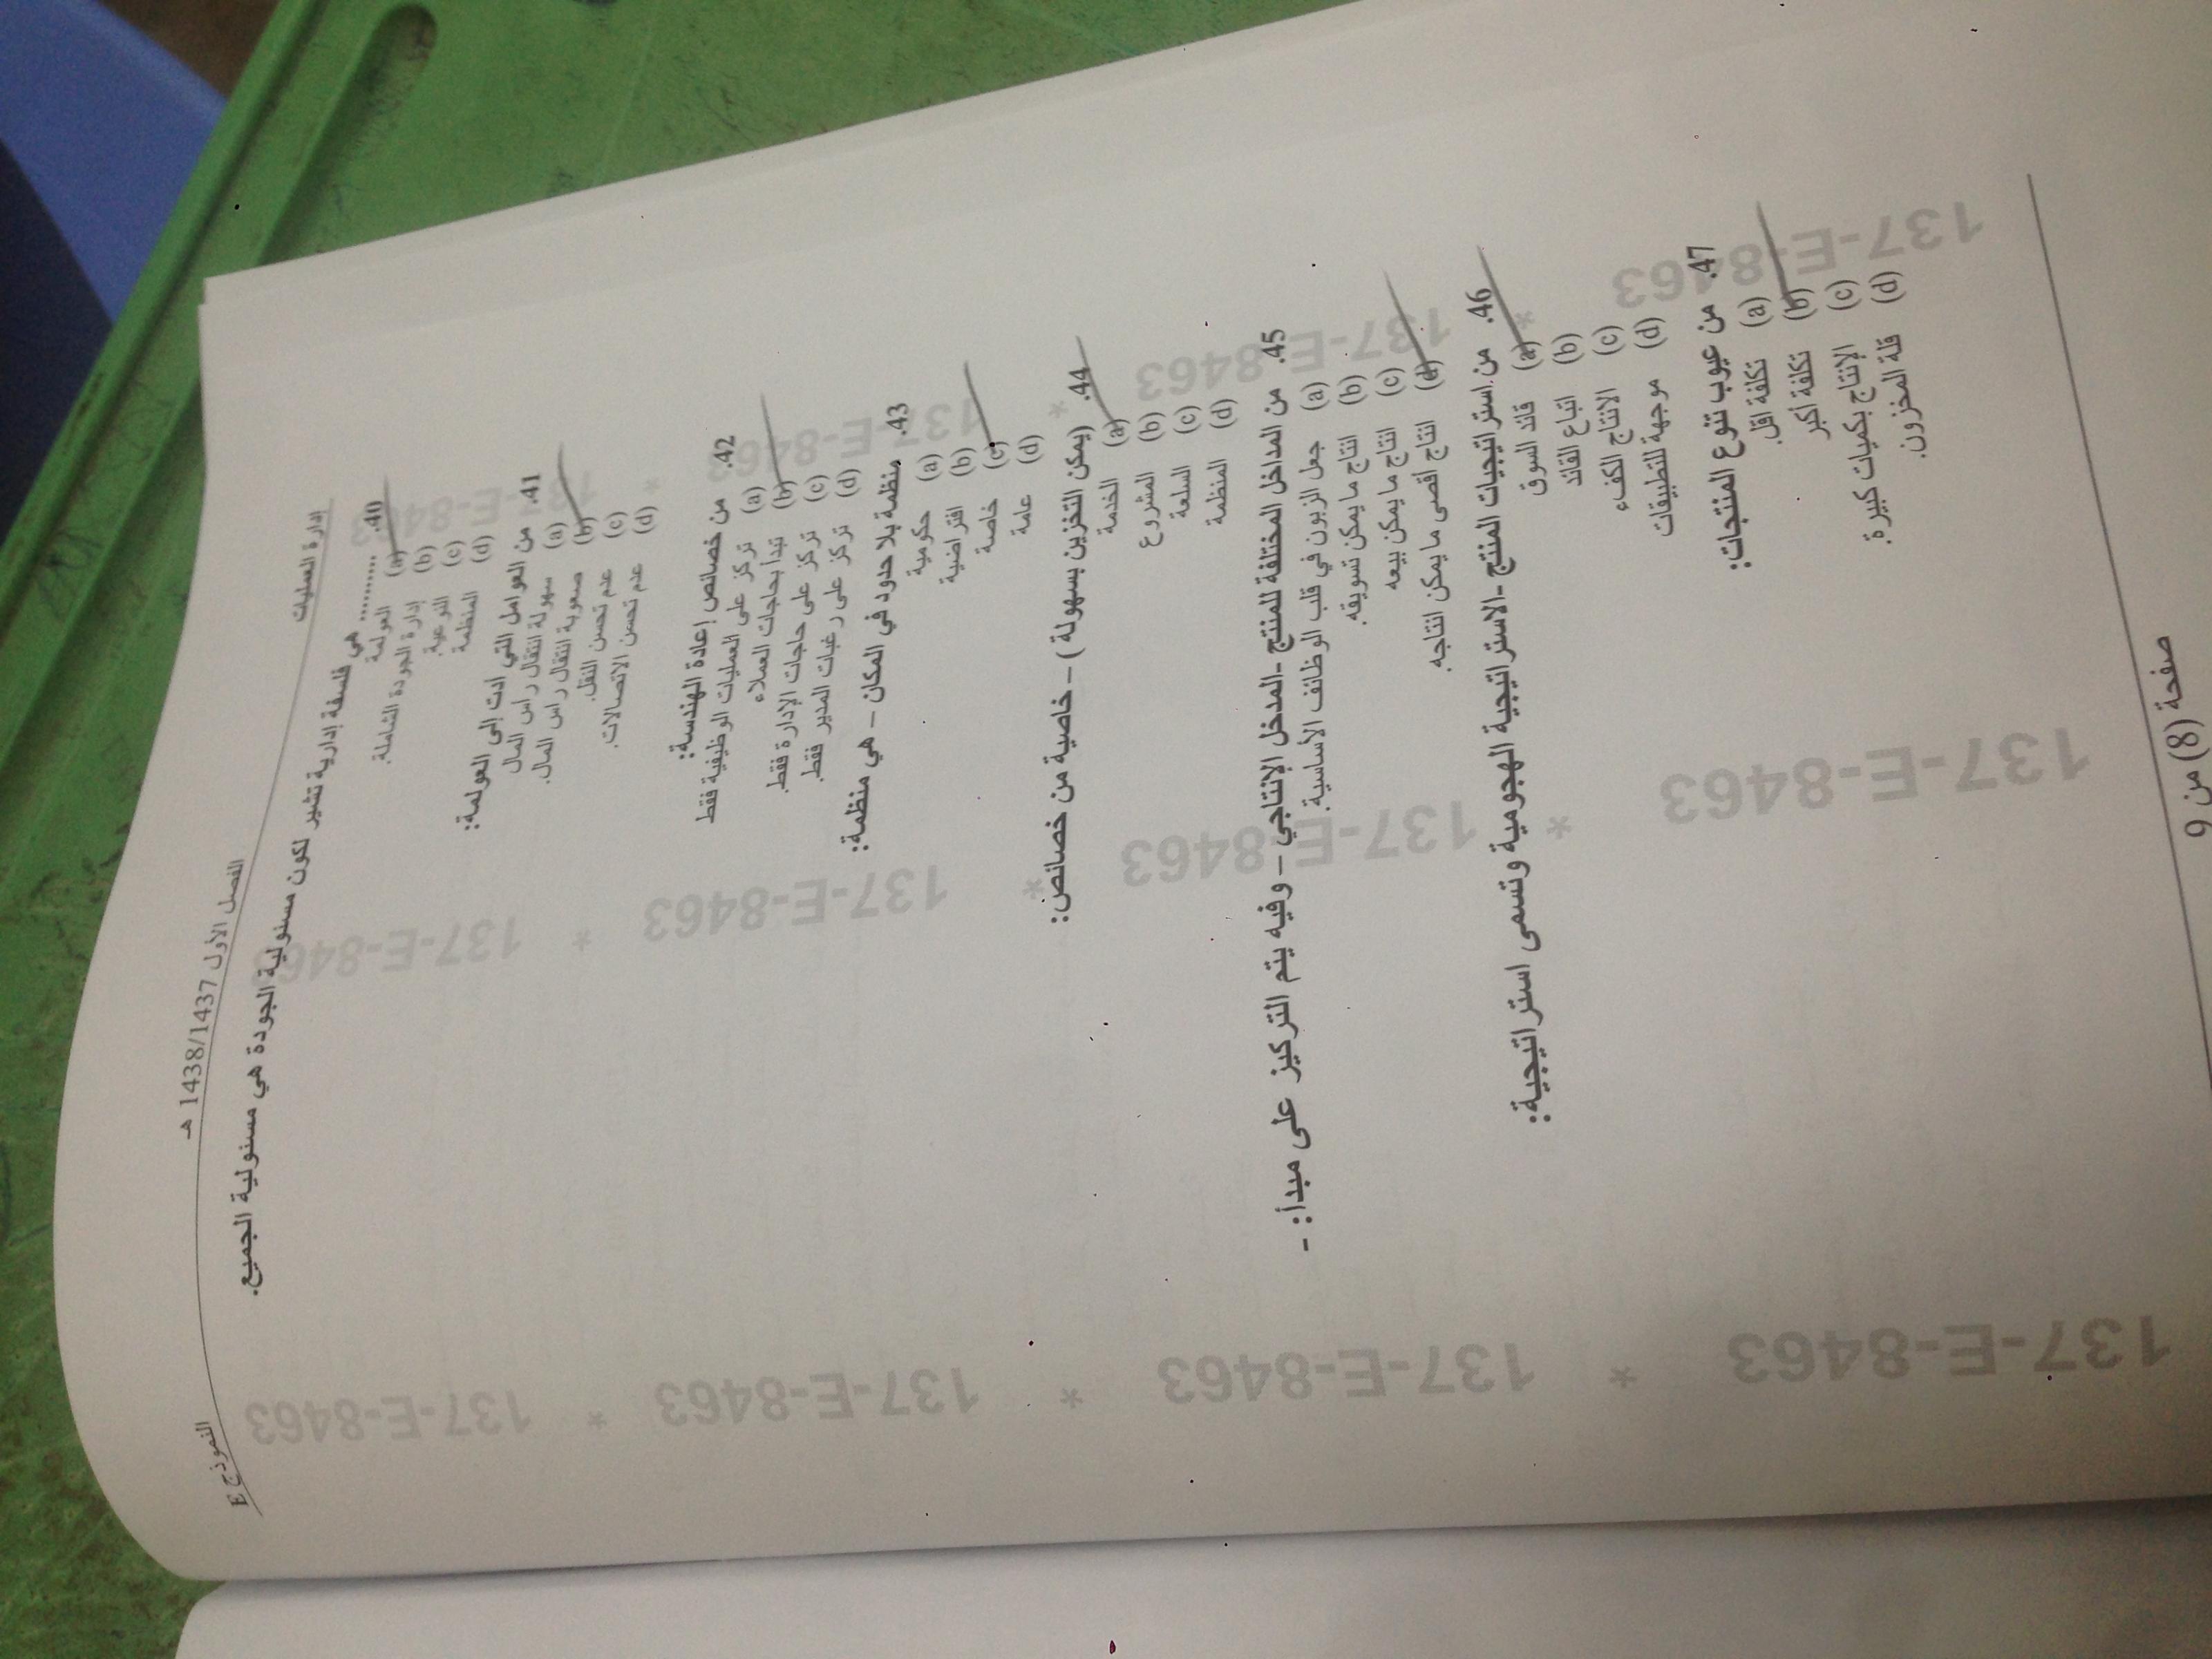 إدارة العمليات الفصل الأول 1438/1437 هـ النموذج E
40. ........... هي فلسفة إدارية تشير لكون مسئولية الجودة هي مسئولية الجميع.
(a) العولمة
(b) إدارة الجودة الشاملة.
(c) النوعية.
(d) المنظمة
41. من العوامل التي أدت إلى العولمة:
(a) سهولة انتقال راس المال
(b) صعوبة انتقال راس المال.
(c) عدم تحسن النقل.
(d) عدم تحسن الاتصالات.
42. من خصائص إعادة الهندسة:
(a) تركز على العمليات الوظيفية فقط
(b) تبدأ بحاجات العملاء
(c) تركز على حاجات الإدارة فقط.
(d) تركز على رغبات المدير فقط.
43. منظمة بلا حدود في المكان – هي منظمة:
(a) حكومية
(b) افتراضية
(c) خاصة
(d) عامة
44. (يمكن التخزين بسهولة ) – خاصية من خصائص:
(a) الخدمة
(b) المشروع
(c) السلعة
(d) المنظمة
45. من المداخل المختلفة للمنتج -المدخل الإنتاجي – وفيه يتم التركيز على مبدأ: -
(a) جعل الزبون في قلب الوظائف الأساسية.
(b) انتاج ما يمكن تسويقه.
(c) انتاج ما يمكن بيعه
(d) انتاج أقصى ما يمكن انتاجه.
46. من استراتيجيات المنتج -الاستراتيجية الهجومية وتسمى استراتيجية:
(a) قائد السوق
(b) اتباع القائد
(c) الانتاج الكفء
(d) موجهة للتطبيقات
47. من عيوب تنوع المنتجات:
(a) تكلفة اقل.
(b) تكلفة أكبر
(c) الإنتاج بكميات كبيرة.
(d) قلة المخزون.
صفحة (8) من 9
137-E-8463 * 137-E-8463 * 137-E-8463 * 137-E-8463
137-E-8463 * 137-E-8463 * 137-E-8463 * 137-E-8463
137-E-8463 * 137-E-8463 * 137-E-8463 * 137-E-8463